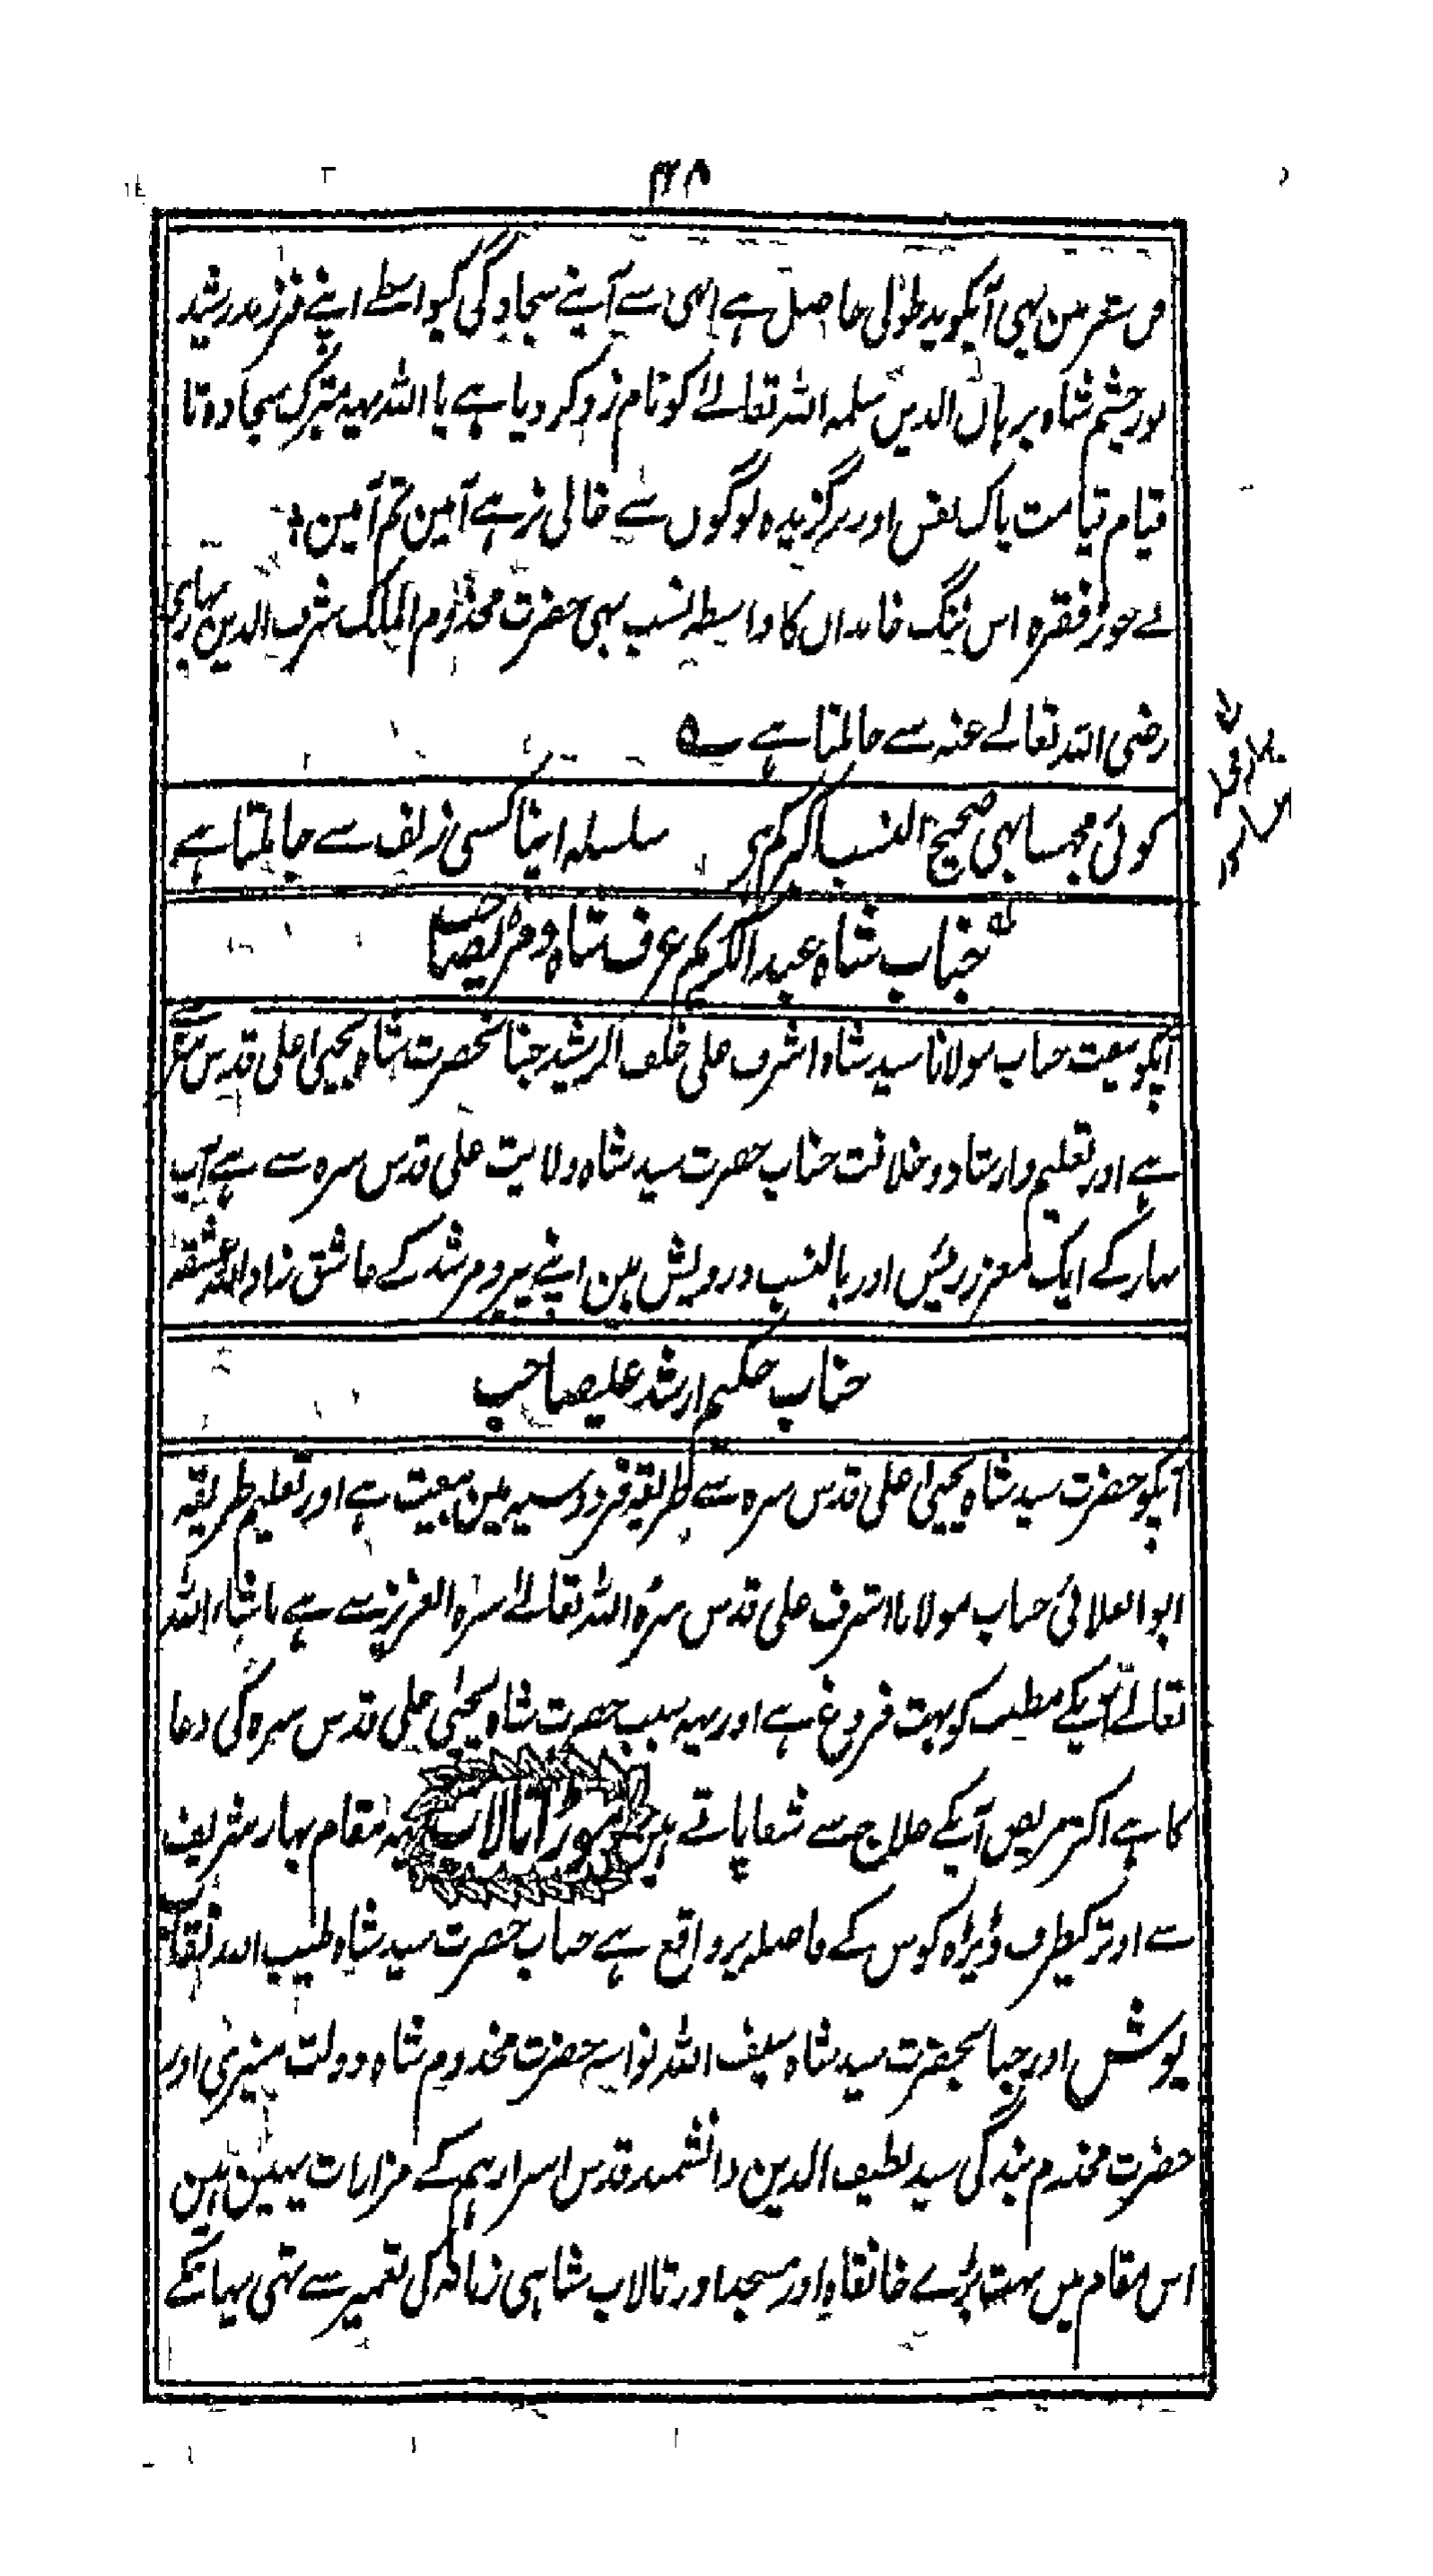 ۲۲۸
فن شعر مین بہی آپکو ید طولٰی حاصل ہے ابہی سے آپنے سجادگی کیواسطے اپنے فرزند رشید
نور چشم شاہ برہان الدین سلمہ اللہ تعالےٰ کو نامزد کر دیا ہے یا اللہ یہہ متبرک سجادہ تا
قیام قیامت پاک نفس اور برگزیدہ لوگوں سے خالی نرہے آمین ثم آمین
فقرہ اس ننگ خانداں کا واسطہ نسب بہی حضرت مخدوم الملک شرف الدین بہاری
رضی اللہ تعالے عنہ سے جاملتا ہے
کوئی مجہسا بہی صحیح النسب اکرم ہی سلسلہ اپنا کسی زلف سے جاملتا ہے
جناب شاہ عبد الکریم عرف شاہ دمڑیصاحب
آپکو بیعت جناب مولانا سید شاہ اشرف علی خلف الرشید جناب حضرت شاہ یحییٰ علی قدس سرہ سے
ہے اور تعلیم وارشاد و خلافت جناب حضرت سید شاہ ولایت علی قدس سرہ سے ہے آپ
بہار کے ایک معزز رئیس اور بالنسب درویش ہین اپنے پیر و مرشد کے عاشق زاد اللہ عشقہ
جناب حکیم ارشد علیصاحب
آپکو حضرت سید شاہ یحییٰ علی قدس سرہ سے طریقہ فردوسیہ مین بیعت ہے اور تعلیم طریقہ
ابوالعلائی جناب مولانا اشرف علی قدس سرہ اللہ تعالےٰ سرہ العزیز سے ہے ماشاء اللہ
تعالےٰ آپکے مطب کو بہت فروغ ہے اور یہہ سبب حضرت شاہ یحیٰی علی قدس سرہ کی دعا
کا ہے اکثر مریض آپکے علاج سے شفا پاتے ہین موڑا تالاب یہ مقام بہار شریف
سے اوتر کیطرف ڈیڑہ کوس کے فاصلہ پر واقع ہے جناب حضرت سید شاہ طیب اللہ نقاب
پوش اور جناب حضرت سید شاہ سیف اللہ نواسہ حضرت مخدوم شاہ دولت منیری اور
حضرت مخدوم بندگی سید لطیف الدین دانشمند قدس اسرارہم کے مزارات یہین ہین
اس مقام میں بہت بڑے خانقاہ اور مسجد اور تالاب شاہی زمانہ کی تعمیر سے تہی یہانکے